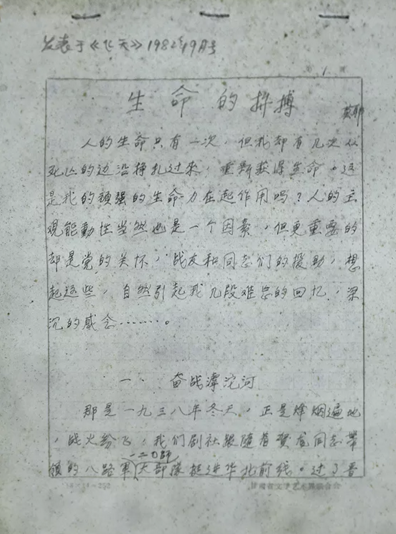 发表于《飞天》1982年19月号
1.
生命的拼搏
黄耶
人的生命只有一次，但我却有几次从
死亡的边沿挣扎过来，重新获得生命。这
是我的顽强的生命力在起作用吗？人的主
观能动性当然也是一个因素，但更重要的
却是党的关怀，战友和同志们的援助，想
起这些，自然引起我几段难忘的回忆，深
沉的感念……。
一、奋战滹沱河
那是一九三八年冬天，正是烽烟遍地
，战火纷飞，我们剧社跟随着贺龙同志率
领的八路军一二〇师大部队挺进华北前线。过了晋